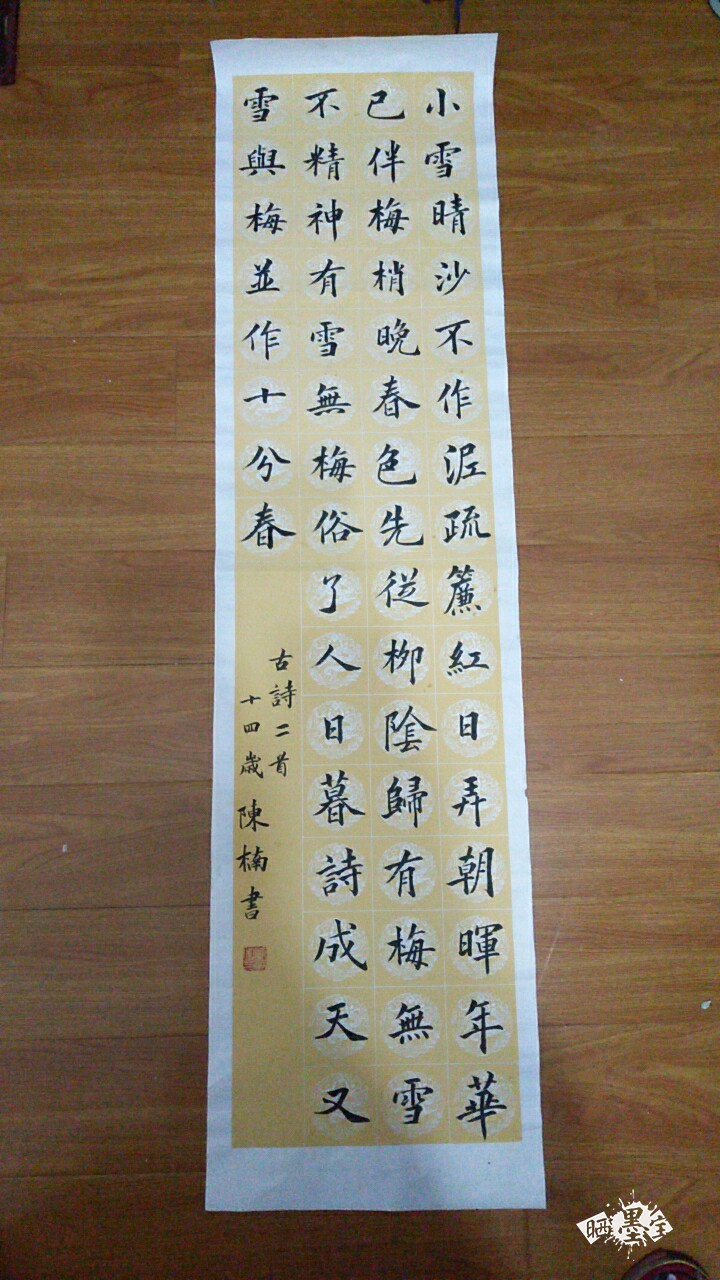 小雪晴沙不作泥疏簾紅日弄朝暉年華
已伴梅梢晚春色先從柳陰歸有梅無雪
不精神有雪無梅俗了人日暮詩成天又
雪與梅並作十分春
古詩二首
十四歲陳楠書
晒墨宝